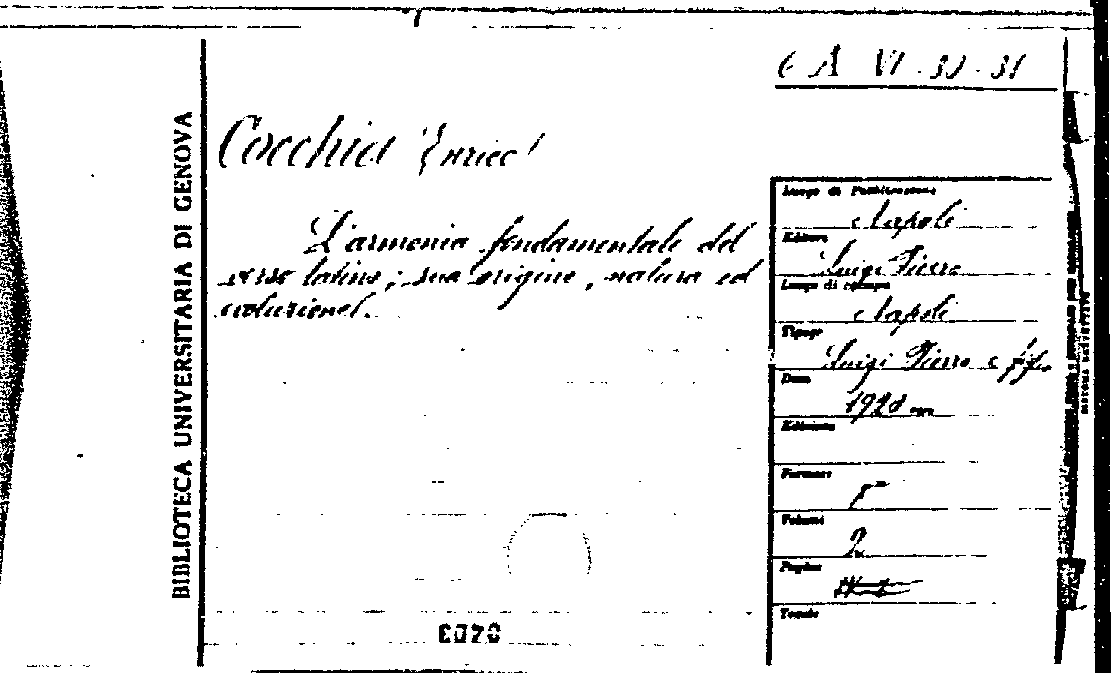 6 A VI . 30 - 31
BIBLIOTECA UNIVERSITARIA DI GENOVA
Cocchia Enrico
L'armonia fondamentale del
verso latino; sua origine, natura ed
evoluzione.
Luogo di Pubblicazione
Napoli
Editore
Luigi Pierro
Luogo di stampa
Napoli
Tipogr
Luigi Pierro e figlio
Data
1920
Edizione
Formato
8°
Volumi
2
Pagine
Tavole